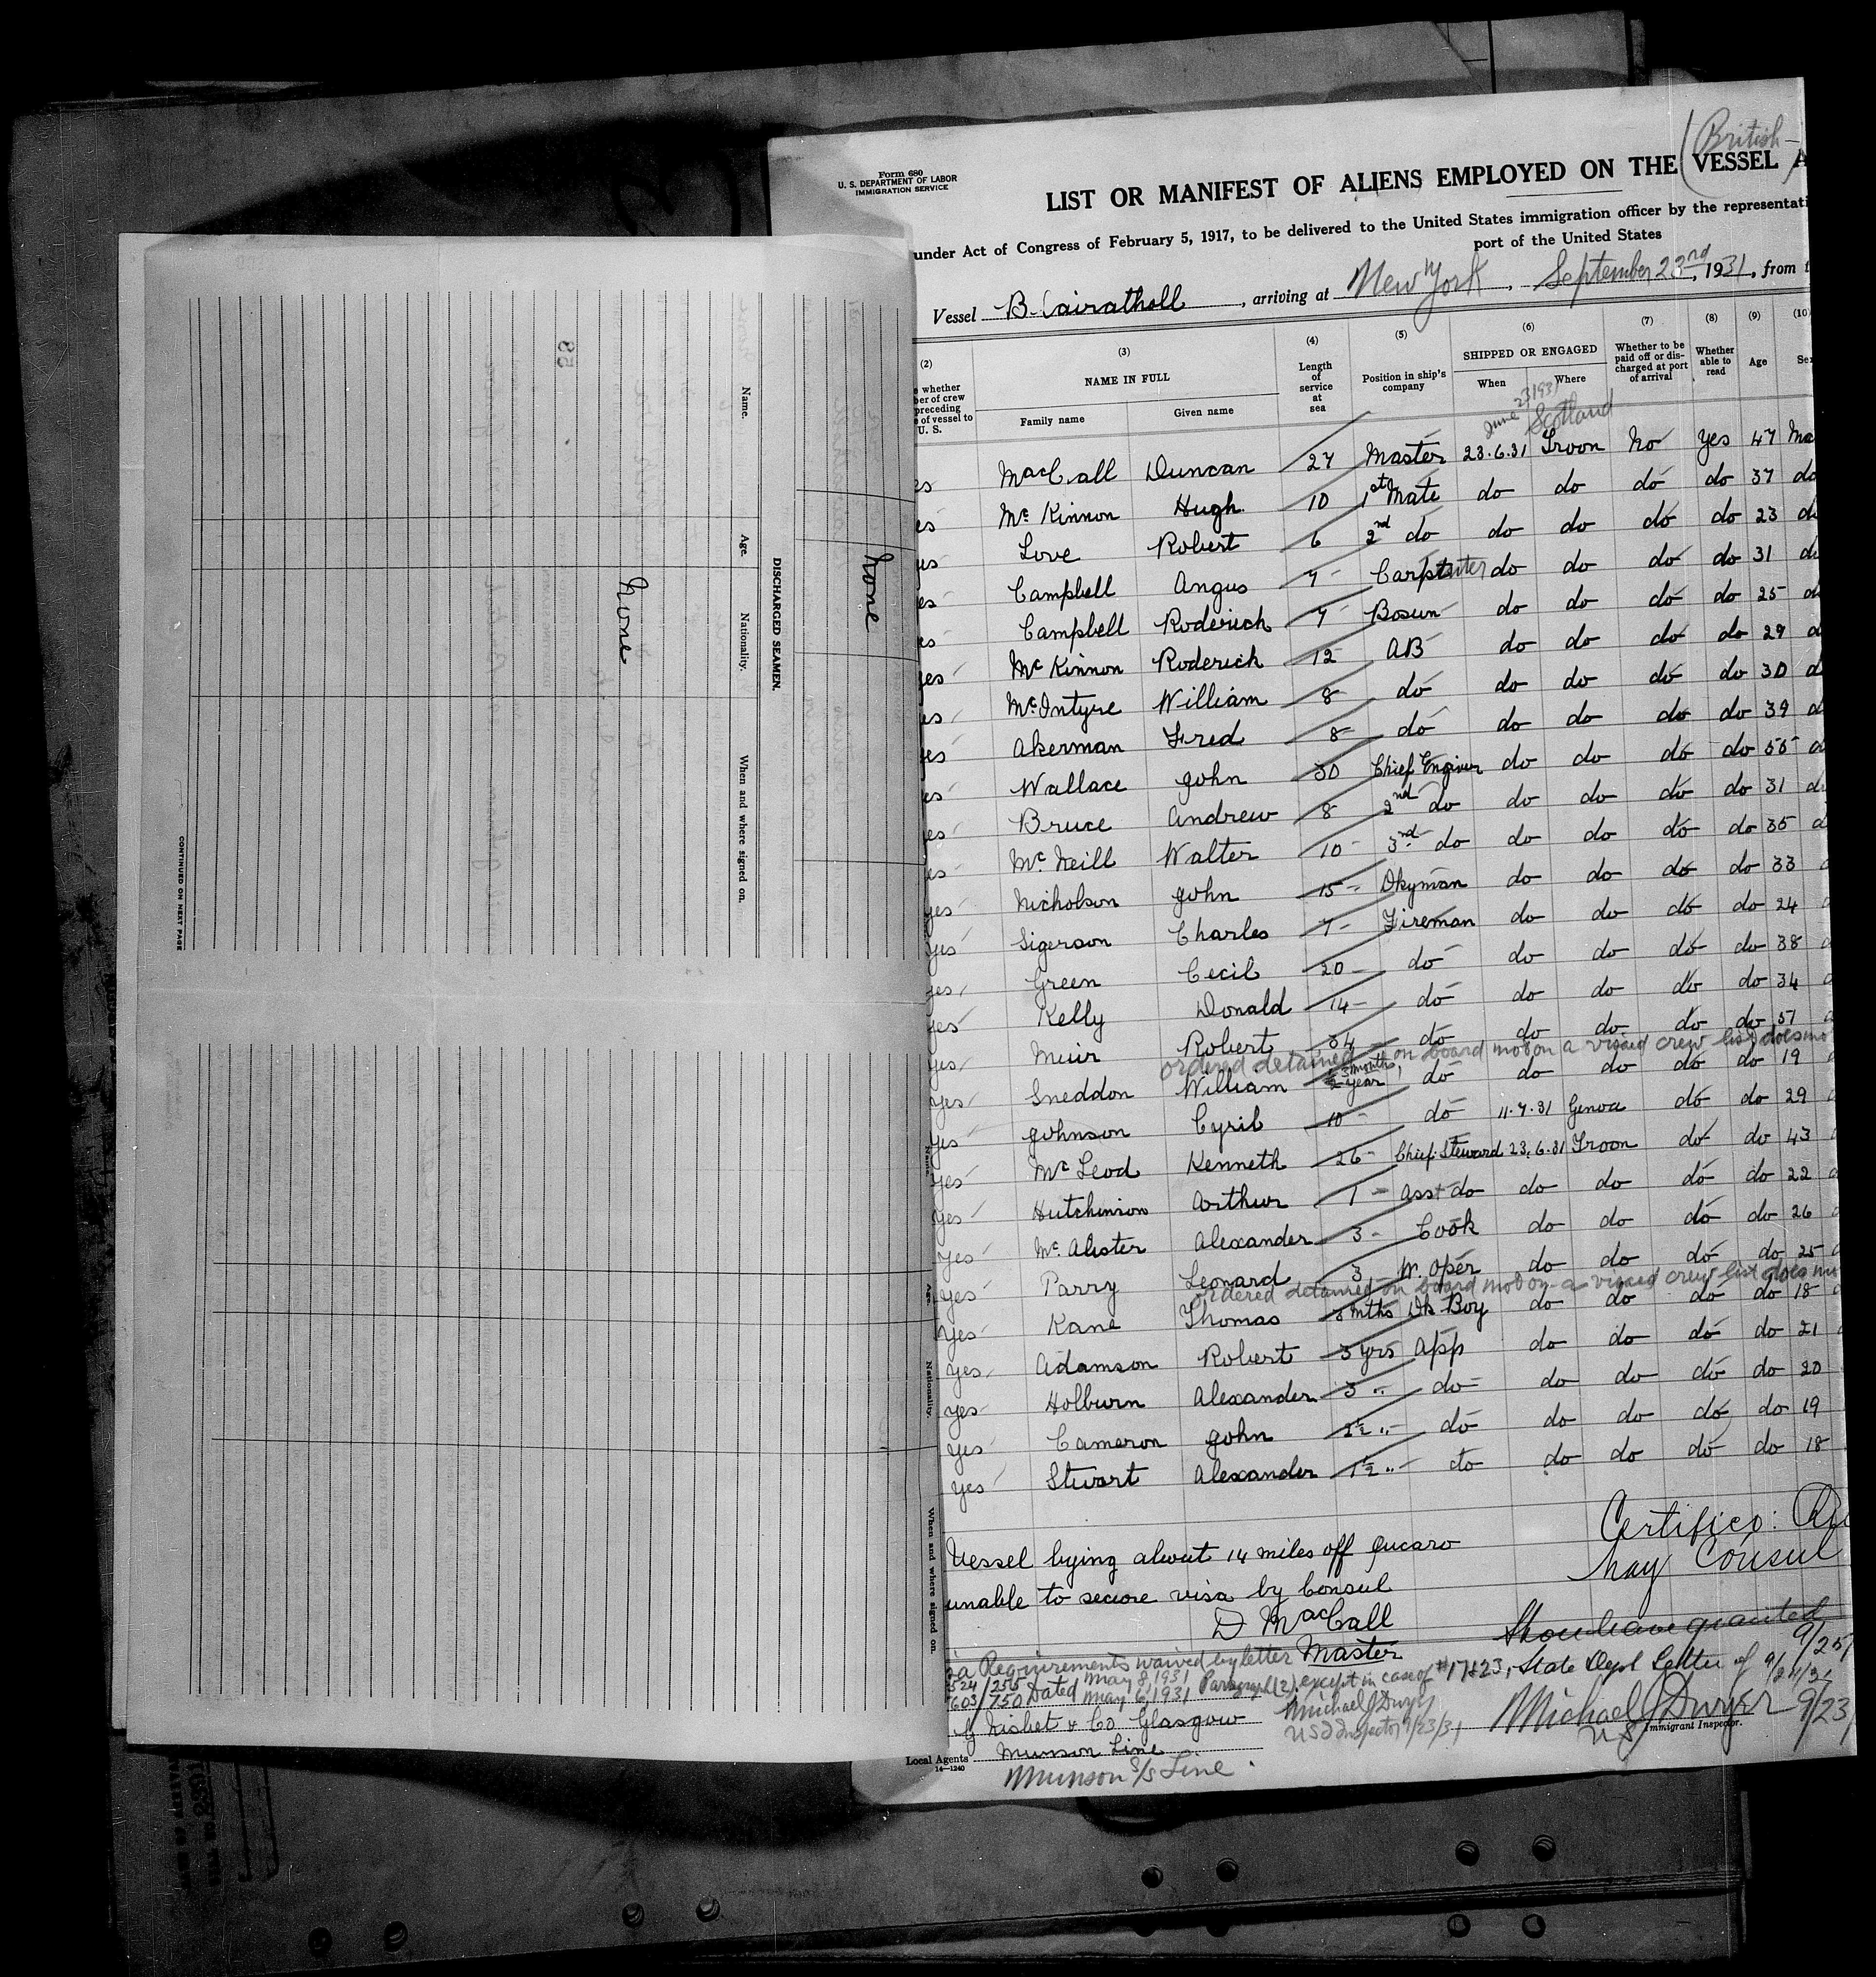 Form 680
U. S. DEPARTMENT OF LABOR
IMMIGRATION SERVICE
(British)
LIST OR MANIFEST OF ALIENS EMPLOYED ON THE VESSEL A
under Act of Congress of February 5, 1917, to be delivered to the United States immigration officer by the representati
port of the United States
Vessel Blairatholl, arriving at New York, September 23rd, 1931, from t
(2) (3) (4) (5) (6) (7) (8) (9) (10)
whether
ber of crew
preceding
of vessel to
U. S.
NAME IN FULL
Family name Given name
Length of service at sea
Position in ship's company
SHIPPED OR ENGAGED
When Where
Whether to be paid off or discharged at port of arrival
Whether able to read
Age
Se
June 23 1931 Scotland
es MacCall Duncan 27 Master 23.6.31 Troon No Yes 47 Ma
es Mc Kinnon Hugh 10 1st Mate do do do do 37 do
yes Love Robert 6 2nd do do do do do 23 do
es Campbell Angus 7 Carpenter do do do do 31 do
es Campbell Roderick 7 Bosun do do do do 25 d
yes Mc Kinnon Roderick 12 AB do do do do 29 d
es McIntyre William 8 do do do do do 30 d
yes Akerman Fred 8 do do do do do 39 d
es Wallace John 30 Chief Engineer do do do do 55 d
yes Bruce Andrew 8 2nd do do do do do 31 d
es Mc Neill Walter 10 3rd do do do do do 35 d
yes Nicholson John 15 Dkyman do do do do 33
yes Sigerson Charles 7 Fireman do do do do 24
yes Green Cecil 20 do do do do do 38
yes Kelly Donald 14 do do do do do 34
yes Muir Robert 34 do do do do do 57
ordered detained on board not on a visaed crew list does no
yes Sneddon William 3 months do do do do do 19
yes Johnson Cyril 10 do 11.7.31 Genoa do do 29
yes Mc Leod Kenneth 26 Chief Steward 23.6.31 Troon do do 43
yes Hutchinson Arthur 1 asst do do do do do 22
yes Mc Alister Alexander 3 Cook do do do do 26
yes Parry Leonard 3 W. Oper do do do do 25
ordered detained on board not on a visaed crew list does no
yes Kane Thomas 3 mths Dk Boy do do do do 18
yes Adamson Robert 3 yrs App do do do do 21
yes Holburn Alexander 3 " do do do do do 20
yes Cameron John 2½ " do do do do do 19
yes Stewart Alexander 1½ " do do do do do 18
Vessel lying about 14 miles off Jucaro
unable to secure visa by Consul
D MacCall
Master
Certifico:
Nay Consul
Requirements waived by letter
524/255 Dated May 8, 1931 Paragraph (2) except in case of #17&23, State Dept Letter of
603/750 May 6, 1931
Shore leave granted 9/25
Michael J Dwyer
US Inspector 9/23/31
Michael J Dwyer 9/23
US Immigrant Inspector.
Nisbet & Co. Glasgow
Local Agents Munson Line
14—1240
Munson S/S Line.
None
DISCHARGED SEAMEN.
Name. Age. Nationality. When and where signed on.
None
58
CONTINUED ON NEXT PAGE
Name. Age. Nationality. When and where signed on.